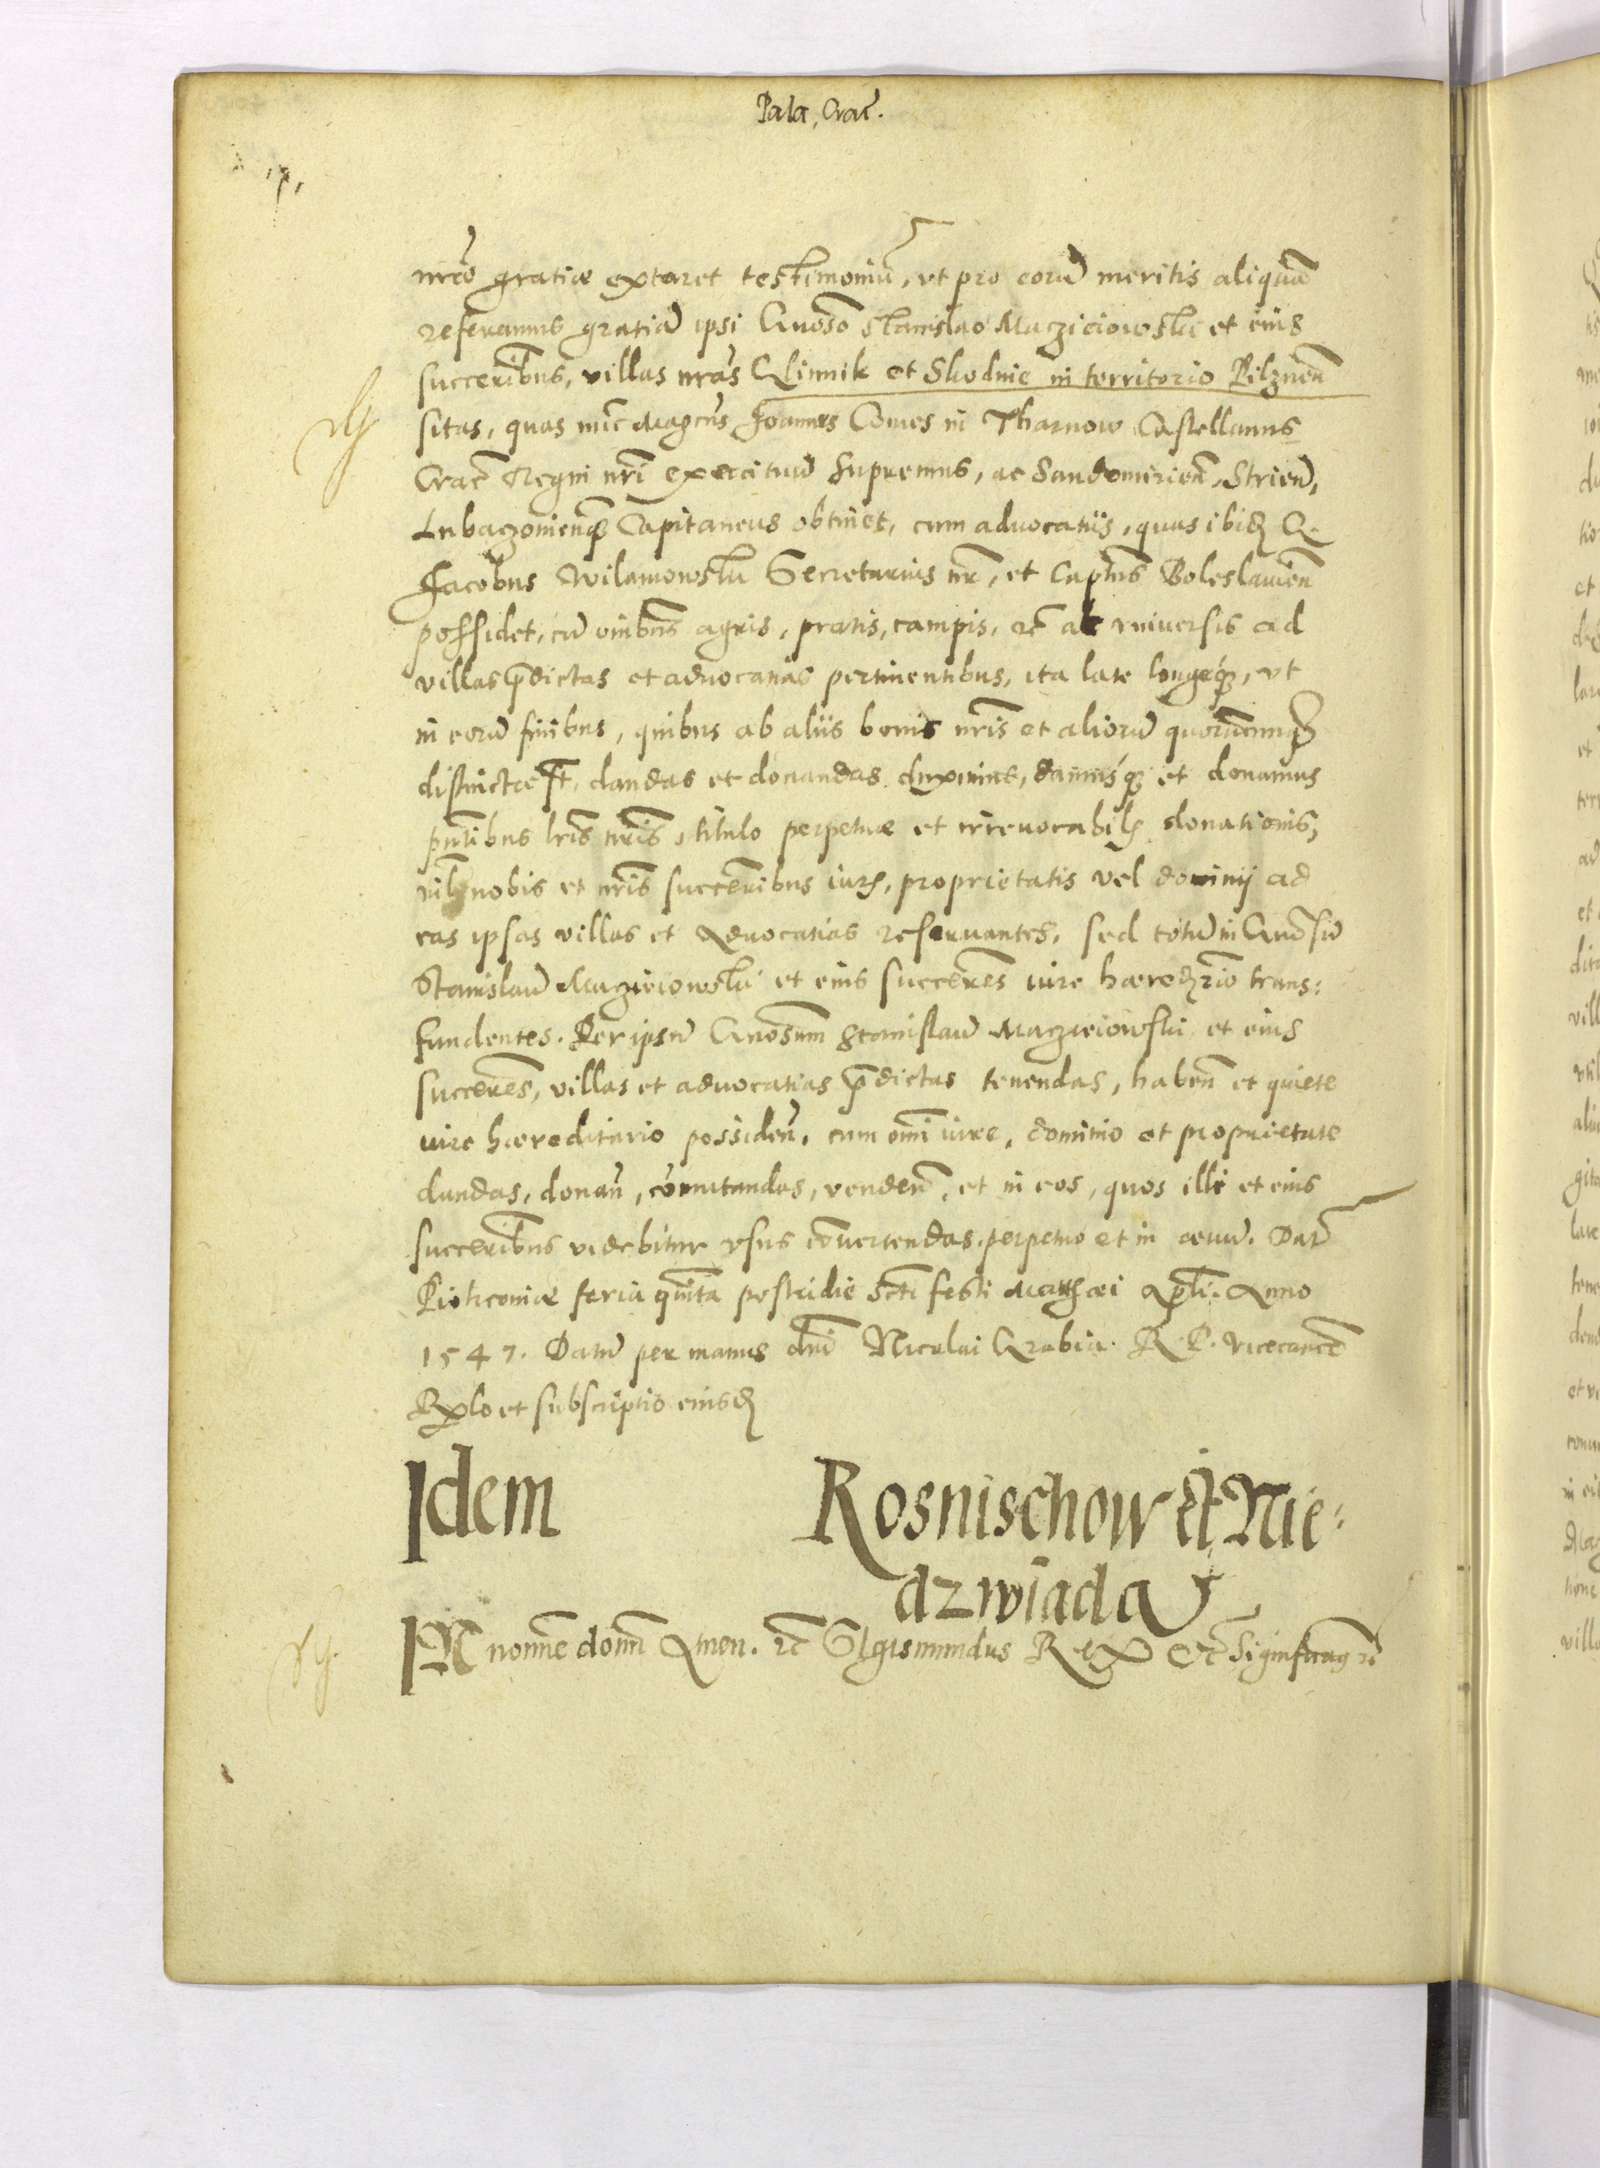 Pala, Crac̃.
nr̃æ gratiæ extaret testimoniũ, vt pro eorũ meritis aliquã
referamus gratiã ipsi Gnõso Stanislao Maczieiowski et eius
succerib̃us, villas nr̃as Glinnik et Skodnie in territorio Pilznen̄
sitas, quas nũc Magcũs Joannes Comes in Tharnow Castellanus
Crac̃ Regni nr̃i exercituũ supremus, ac Sandomirien̄, Strien̄,
Lubaczouienq̃ Capitaneus obtinet, cum aduocatiis, quas ibid̃ G.
Jacobus Wilamowski Secretarius nr̃, et Captñs Boleslauien̄
possidet, cũ omib̃us agris, pratis, campis, et̃ ac vniuersis ad
villas p̃dictas et aduocatias pertinentibus, ita late longeq̃, vt
in eorũ finibus, quibus ab aliis bonis nr̃is et aliorũ quorũcunq̃
distinctæ st̃, dandas et donandas duximus, damusq̃ et donamus
pñtibus lr̃is nr̃is, titulo perpetuæ et irreuocabil̃ donationis,
nil̃ nobis et nr̃is succerib̃us iur̃, proprietatis vel dominij ad
eas ipsas villas et Aduocatias reseruantes, sed totũ in Gnõsũ
Stanislaũ Maczieiowski et eius succeres̃ iure hæredr̃io trans:
fundentes. Per ipsũ Gnõsum Stanislaũ Maczieiowski et eius
succeres̃, villas et aduocatias p̃dictas tenendas, haben̄ et quiete
iure hæreditario possiden̄, cum om̃i iure, dominio et proprietate
dandas, donan̄, cõmutandas, venden̄, et in eos, quos illi et eius
succerib̃us videbitur vsus cõuertendas, perpetuo et in æuũ. Dat̃
Piotrcouiæ feria quĩta postridie Sct̃i festi Matthæi Apl̃i. Anno
1547. Datũ per manus dñi Nicolai Grabia. R. P. vicecanc̃
Rxlo et subscriptio eiusd̃
Idem Rosnischow et Nie:
dzwiada
IN nomẽ domĩ Amen. et̃ Sigismundus Rex etc̃ Significam̃ et̃